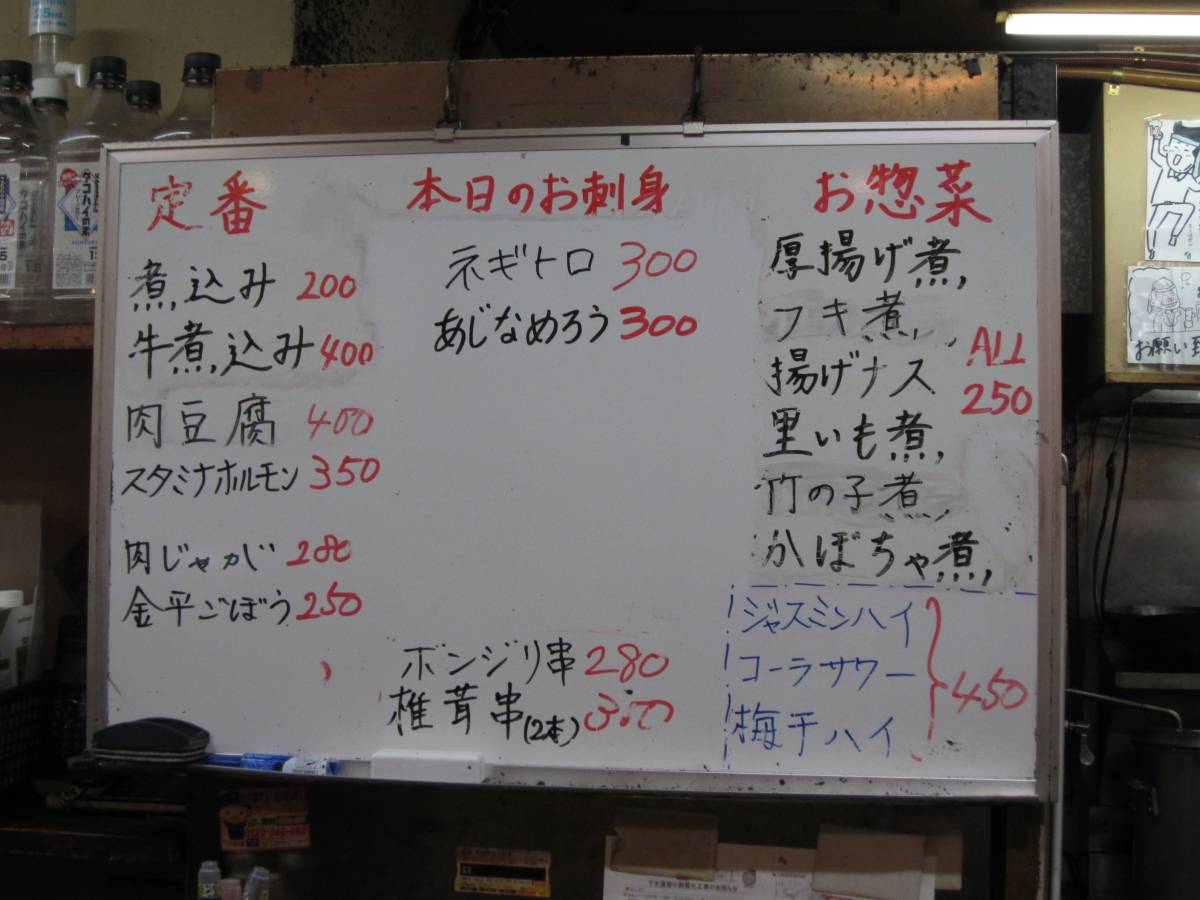 定番
煮込み 200
牛煮込み 400
肉豆腐 400
スタミナホルモン 350
肉じゃが 280
金平ごぼう 250
本日のお刺身
ネギトロ 300
あじなめろう 300
ボンジリ串 280
椎茸串(2本) 300
お惣菜
厚揚げ煮
フキ煮
揚げナス
里いも煮
竹の子煮
かぼちゃ煮
ALL
250
ジャスミンハイ
コーラサワー
梅干ハイ
450
タコハイの素
お願い